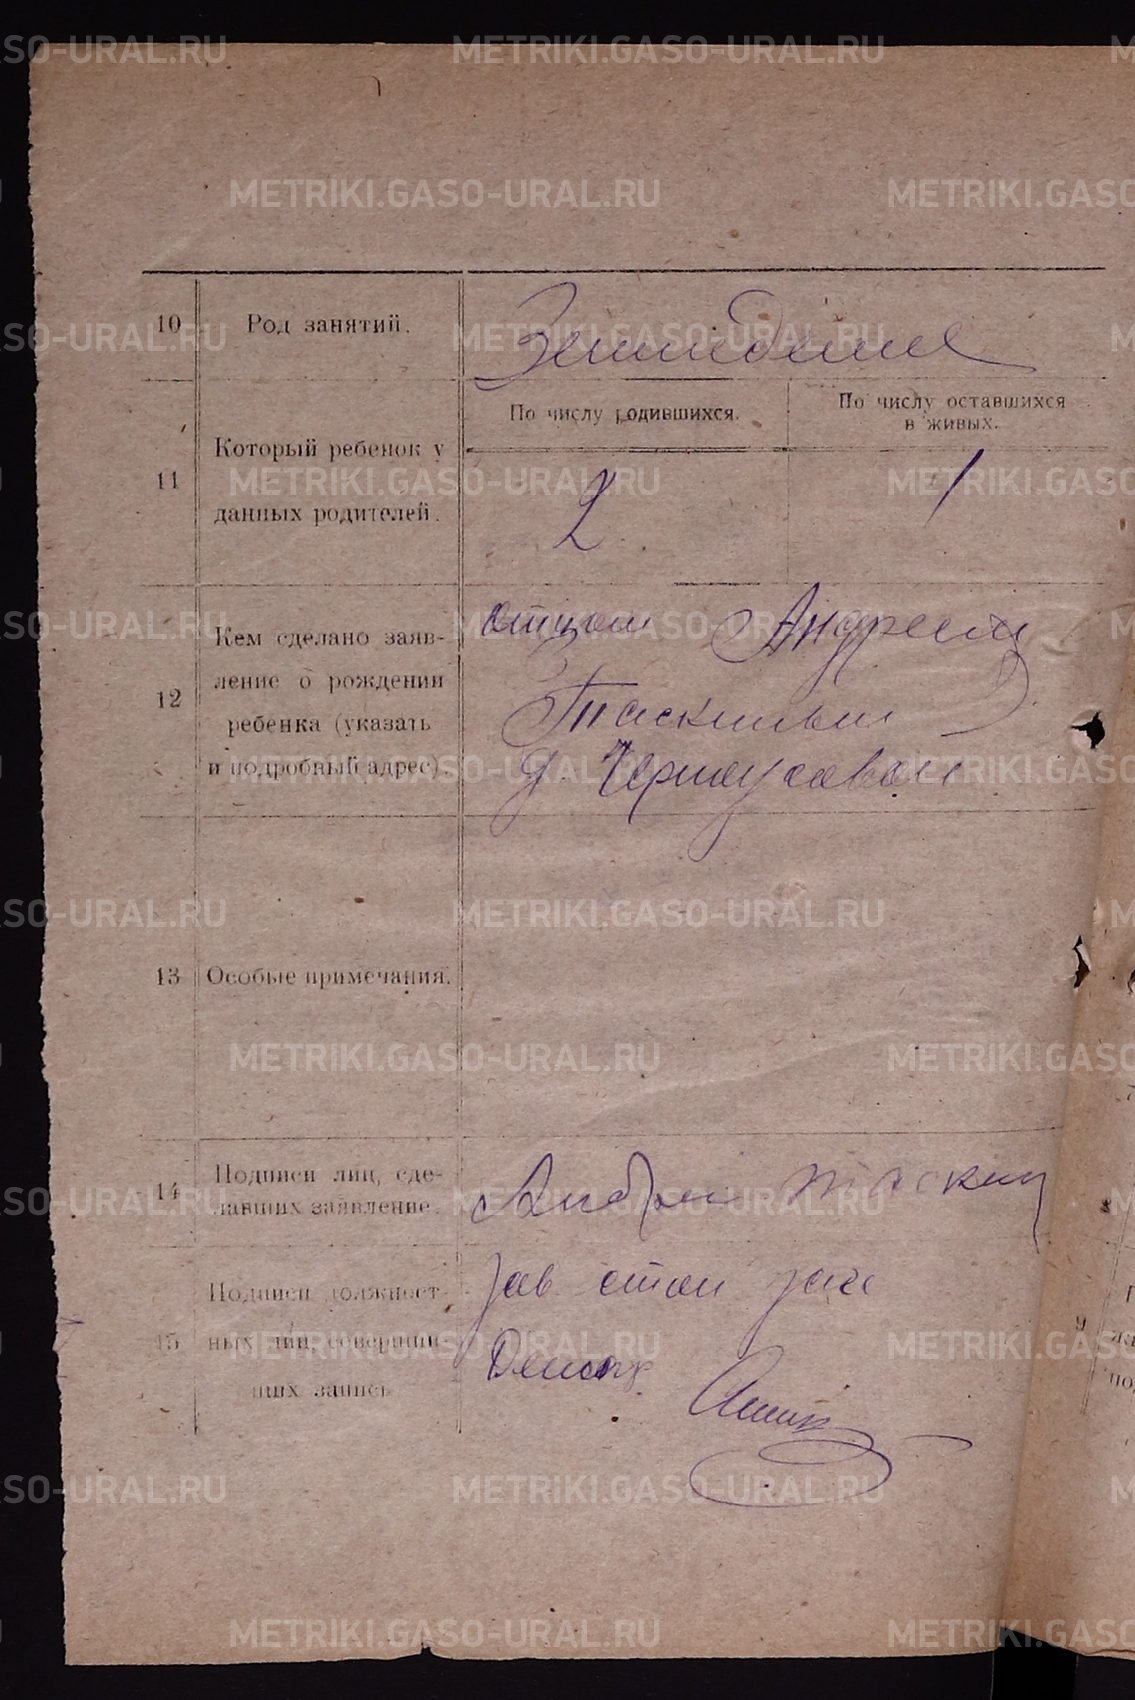 10 Род занятий. Земледелие
По числу родившихся. По числу оставшихся
в живых.
11 Который ребенок у
данных родителей. 2 1
12 Кем сделано заяв-
ление о рождении
ребенка (указать
и подробный адрес).
отцом Андреем
Таскиным
д. Черноусовой
13 Особые примечания.
14 Подписи лиц, сде-
лавших заявление. Андрей Таскин
15 Подписи должност-
ных лиц, совершив-
ших запись
Зав стол загс
METRIKI.GASO-URAL.RU